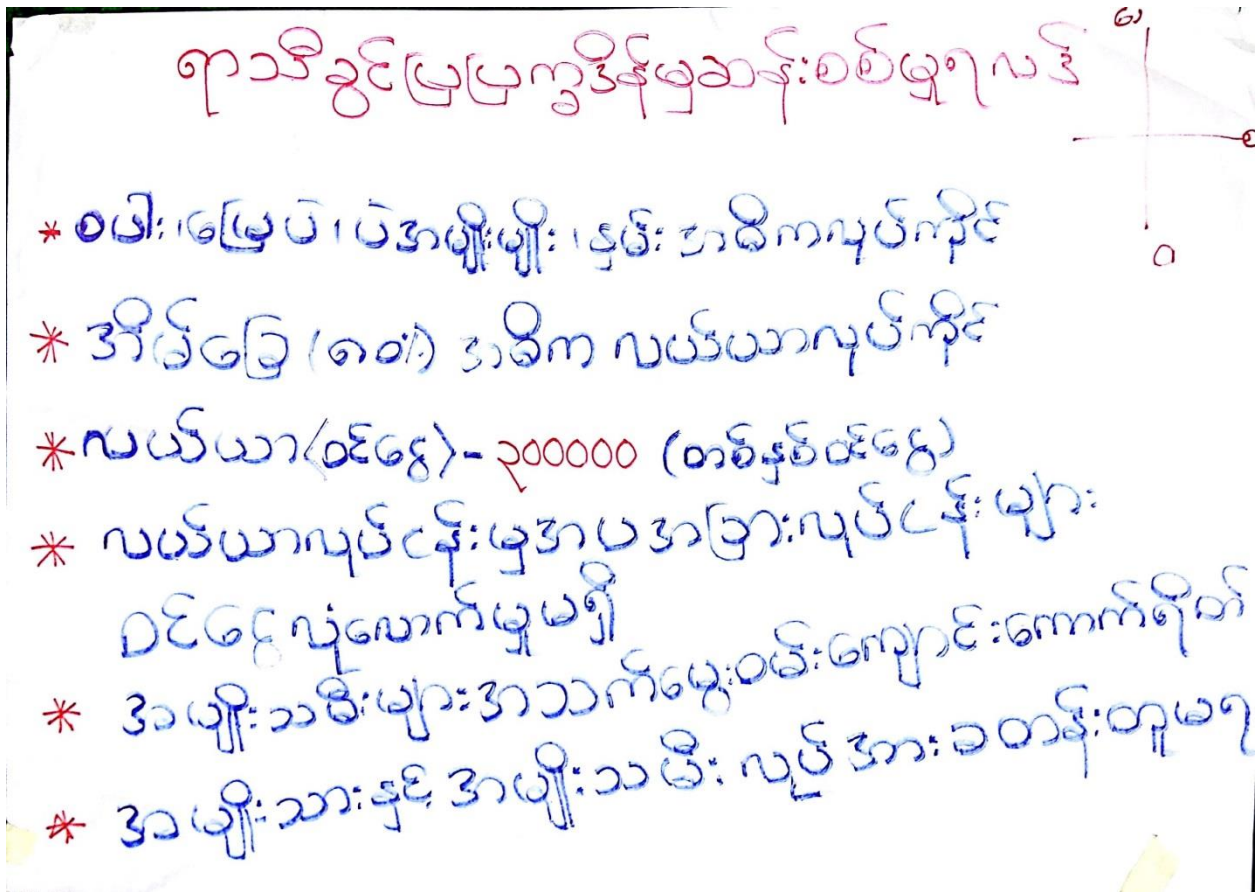 ရာသီခွင်ပြပြက္ခဒိန်မှဆန်းစစ်မှုရလဒ်
* စပါး၊မြေပဲ၊ပဲအမျိုးမျိုး၊နှမ်း အဓိကလုပ်ကိုင်
* အိမ်ခြေ (၈၀%) အဓိက လယ်ယာလုပ်ကိုင်
* လယ်ယာ(ဝင်ငွေ)-၃၀၀၀၀၀ (တစ်နှစ်ဝင်ငွေ)
* လယ်ယာလုပ်ငန်းမှအပအခြားလုပ်ငန်းများ
ဝင်ငွေလုံလောက်မှုမရှိ
* အမျိုးသမီးများအသက်မွေးဝမ်းကျောင်းကောက်ရိတ်
* အမျိုးသားနှင့် အမျိုးသမီး လုပ်အားခတန်းတူမရ